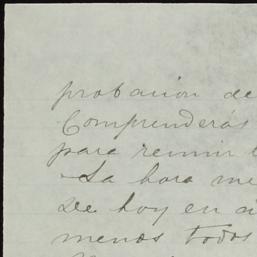 probación de
Comprenderás
para reunir
La hora me
de hoy en a
menos todos